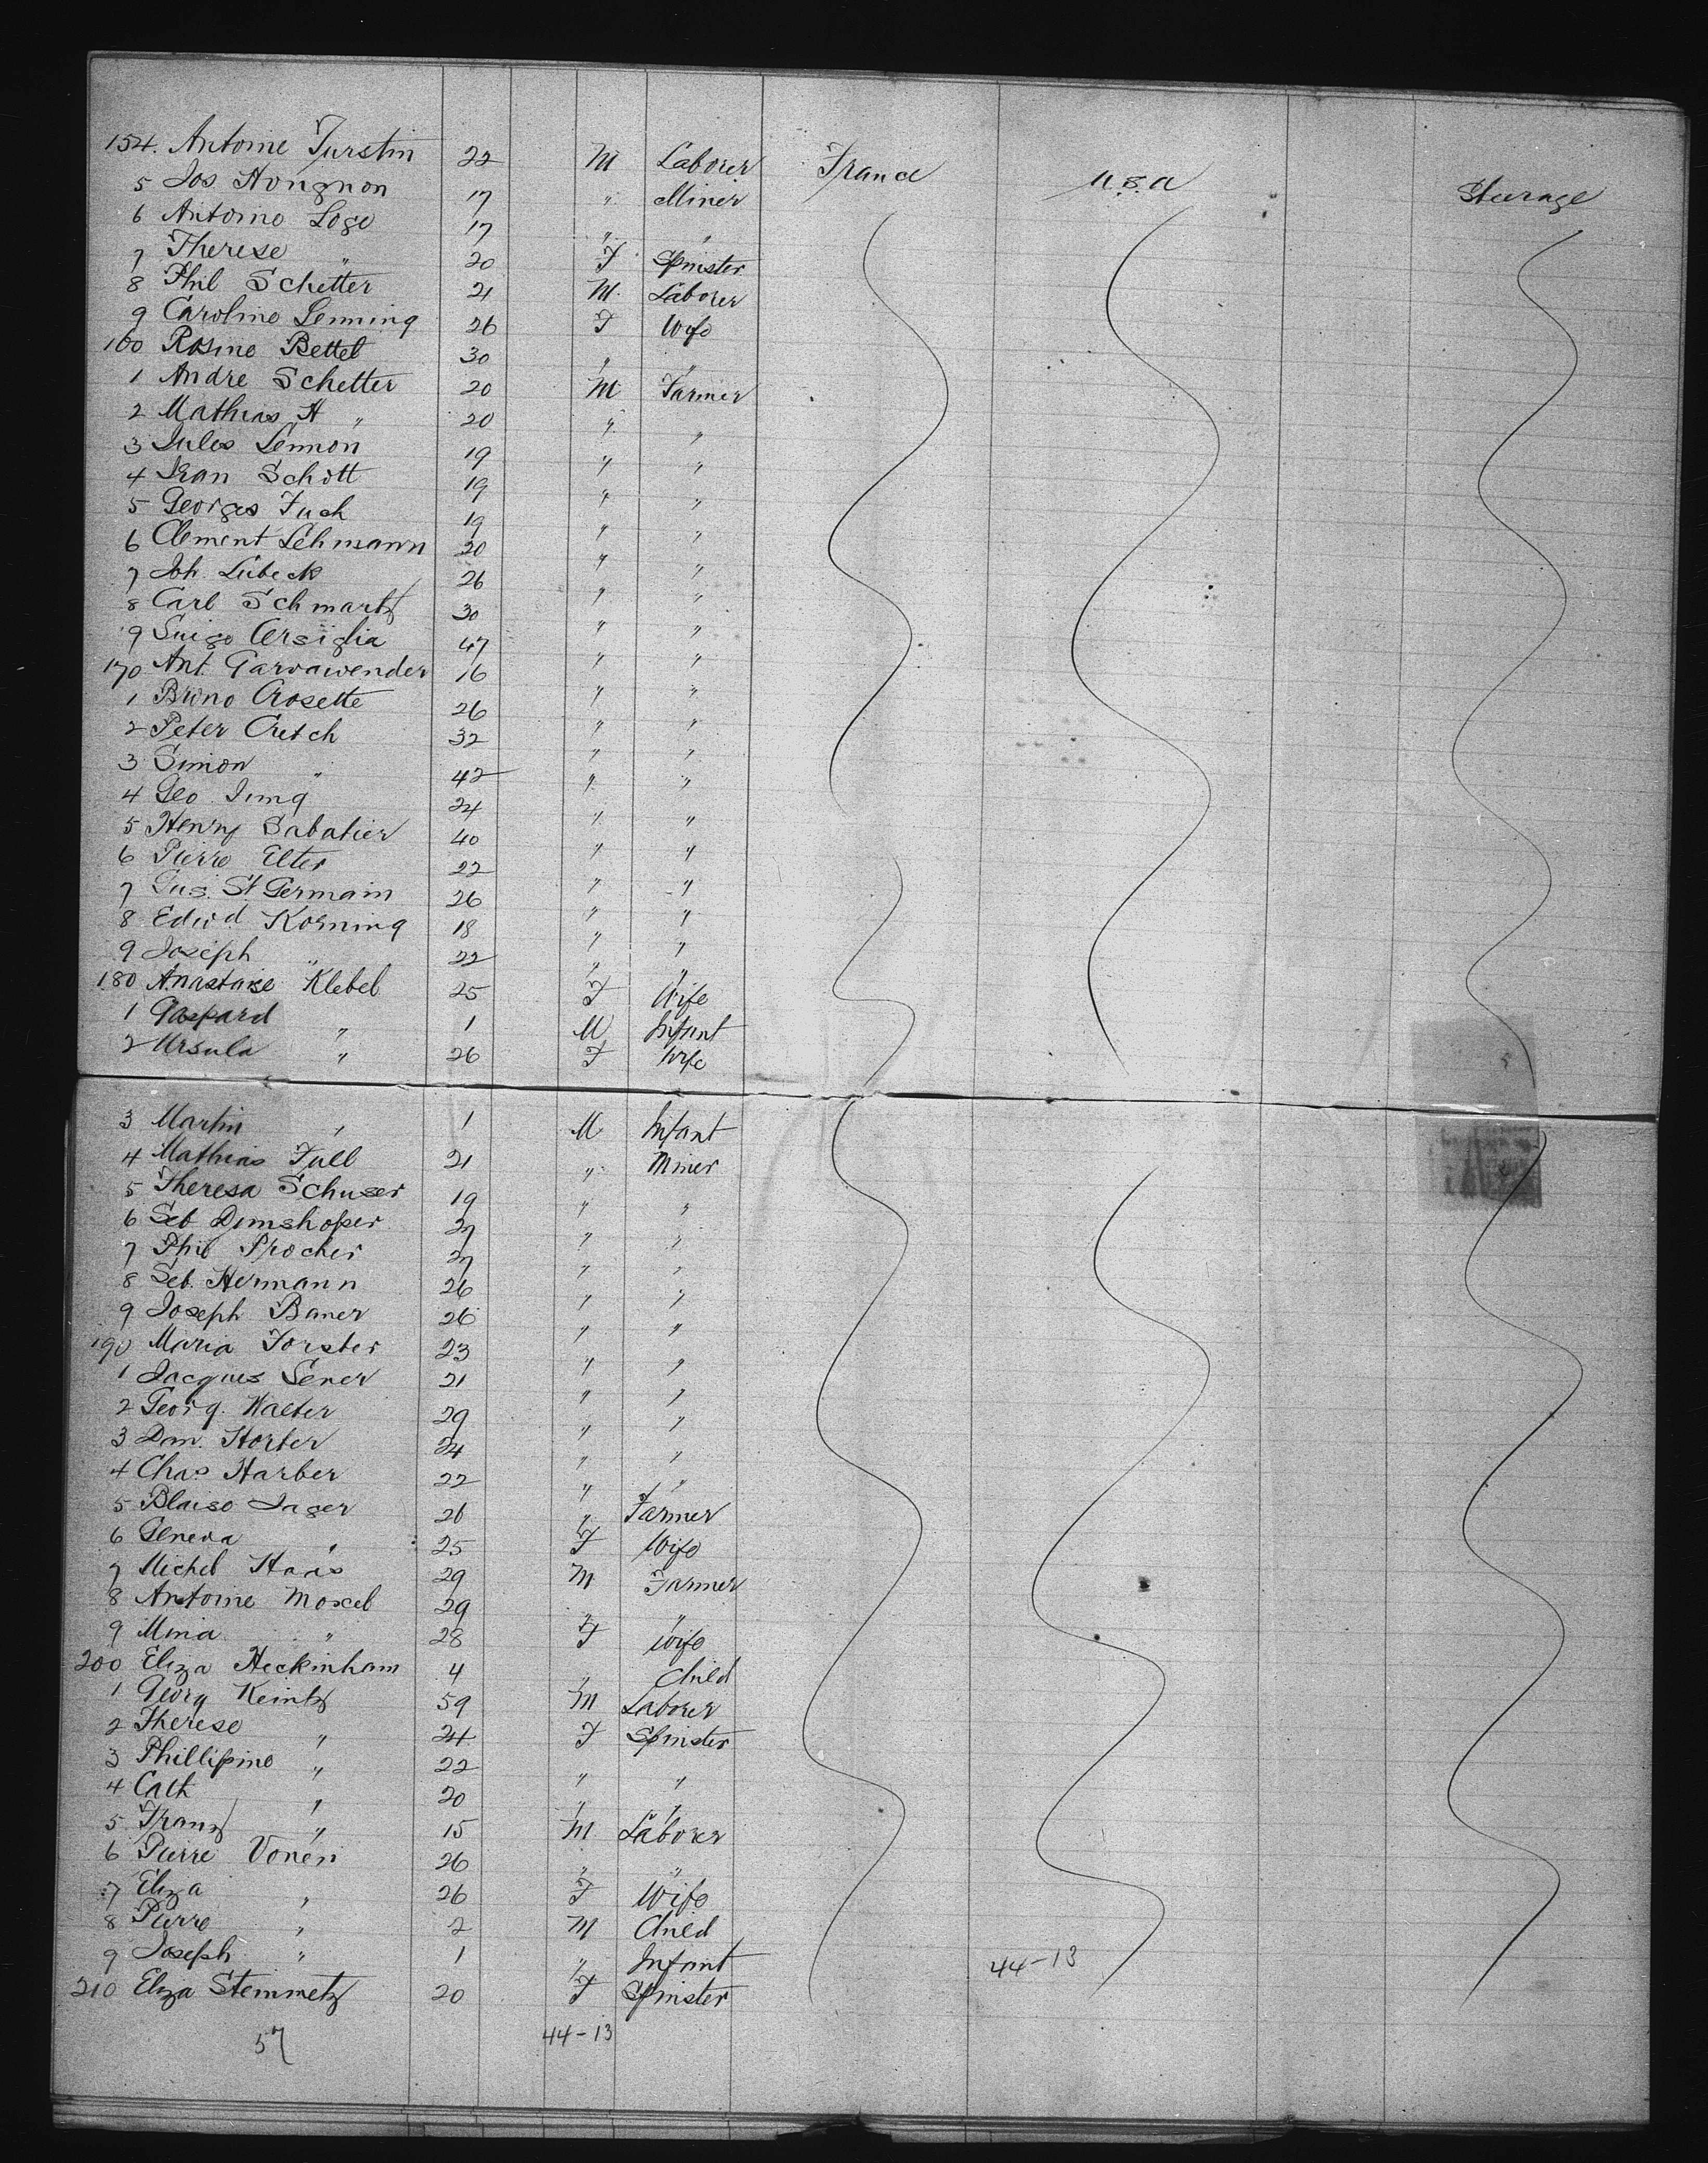 154. Antoine Furstin 22 M Laborer France U.S.A Steerage
5 Jos Hongnon 17 " Miner
6 Antoine Loge 17 " "
7 Therese " 20 F Spinster
8 Phil Schetter 21 M. Laborer
9 Caroline Lenning 26 F Wife
160 Rosine Bettel 30 " "
1 Andre Schetter 20 M Farmer
2 Mathias H " 20 " "
3 Jules Lennon 19 " "
4 Jean Schott 19 " "
5 Georges Fuch 19 " "
6 Clement Lehmann 20 " "
7 Joh. Lubeck 26 " "
8 Carl Schmartz 30 " "
9 Luigo Arsiglia 47 " "
170 Ant. Garvawender 16 " "
1 Bruno Crosette 26 " "
2 Peter Cretch 32 " "
3 Simon " 42 " "
4 Geo. Jung 24 " "
5 Henry Sabatier 40 " "
6 Pierre Elter 22 " "
7 Gus. St Germain 26 " "
8 Edwd Korning 18 " "
9 Joseph " 22 " "
180 Anastasie Klebel 25 F Wife
1 Gaspard " 1 M Infant
2 Ursula " 26 F Wife
3 Martin " 1 M Infant
4 Mathias Full 21 " Miner
5 Theresa Schuser 19 " "
6 Seb Dimshoper 27 " "
7 Phil Procher 27 " "
8 Seb. Hermann 26 " "
9 Joseph Bauer 26 " "
190 Maria Forster 23 " "
1 Jacques Sener 21 " "
2 Georg. Walter 29 " "
3 Dan. Horber 24 " "
4 Chas Harber 22 " "
5 Blaise Jager 26 " Farmer
6 Geneva " 25 F Wife
7 Michel Haas 29 M Farmer
8 Antoine Moxel 29 " "
9 Mina " 28 F Wife
200 Eliza Heckinham 4 " Child
1 Georg Keintz 59 M Laborer
2 Therese " 24 F Spinster
3 Phillipine " 22 " "
4 Cath " 20 " "
5 Franz " 15 M Laborer
6 Pierre Vonen 26 " "
7 Eliza " 26 F Wife
8 Pierre " 2 M Child
9 Joseph " 1 " Infant 44-13
210 Eliza Steinmetz 20 F Spinster
57 44-13